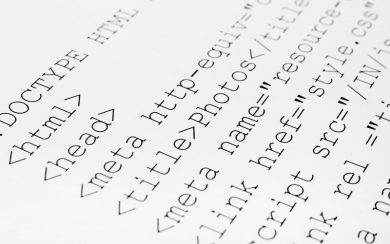 DOCTYPE HTML
<html>
<head>
<meta http-equiv="
<title>Photos</title
<meta name="resource-
<link href="style.css"
script src="/IN/
nk rel="
a name="